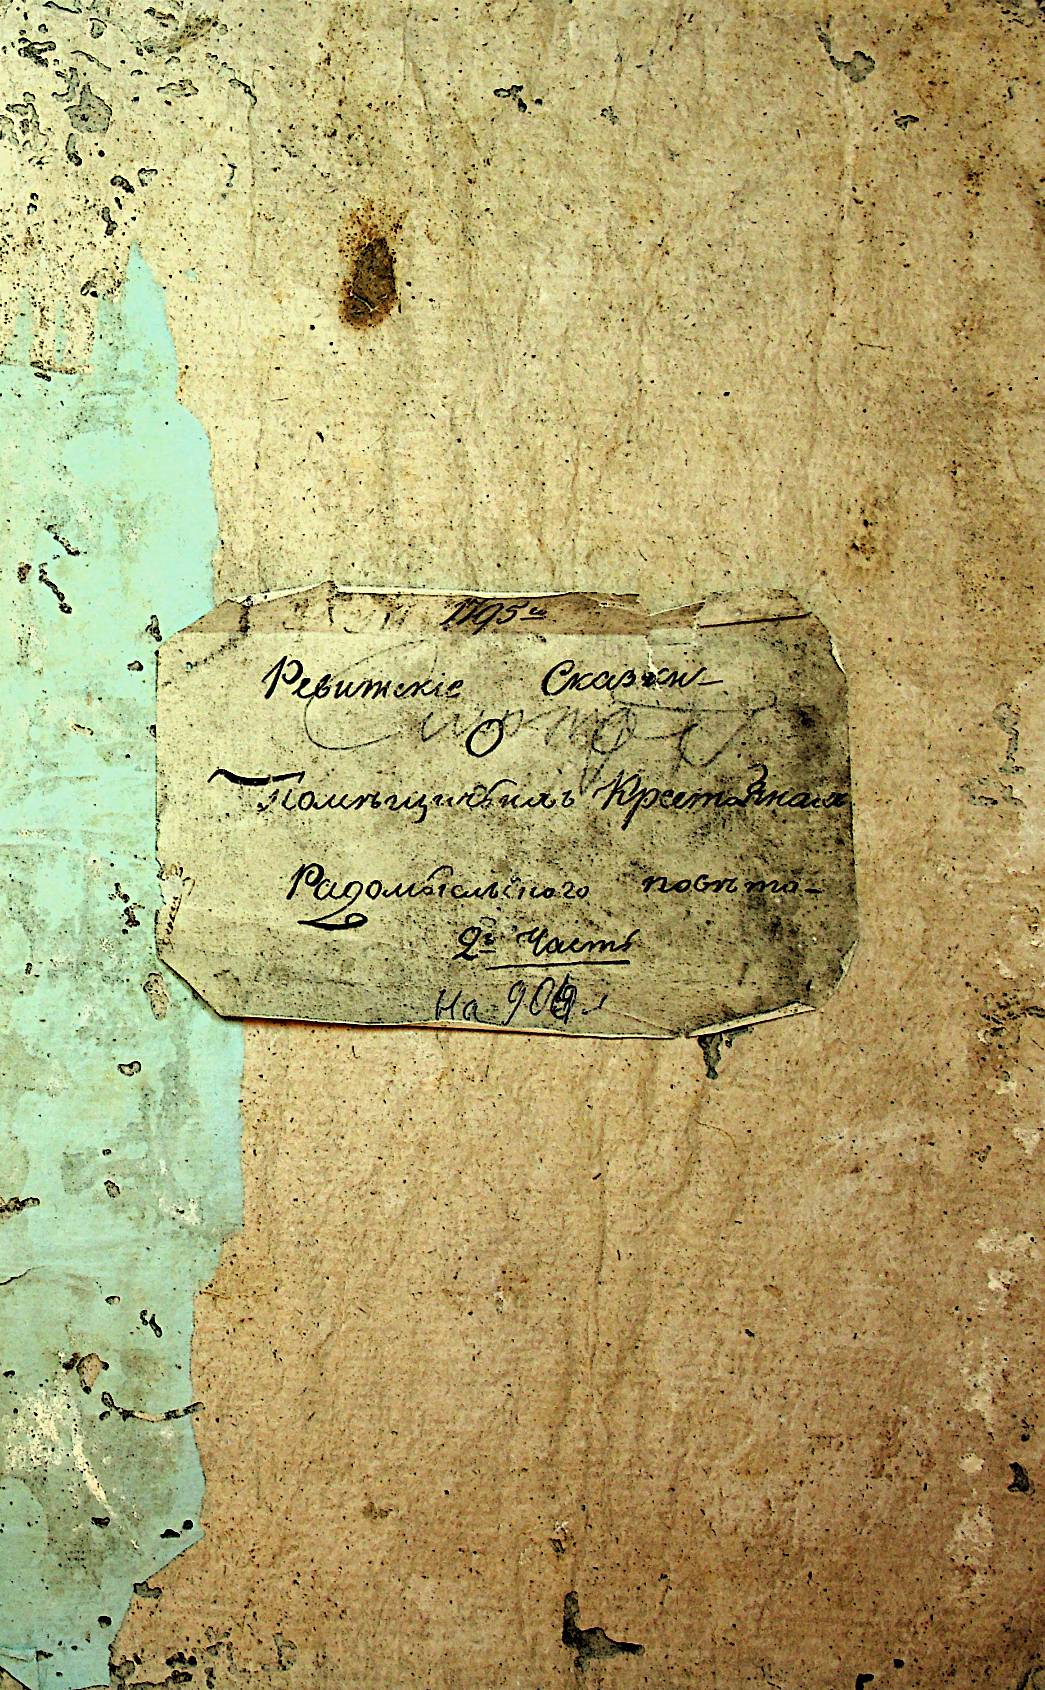 1795 го
Ревижскіе Сказки
О
Помѣщичьихъ Крестьянахъ
Радомысльского повѣта
2я Часть
На 909 л